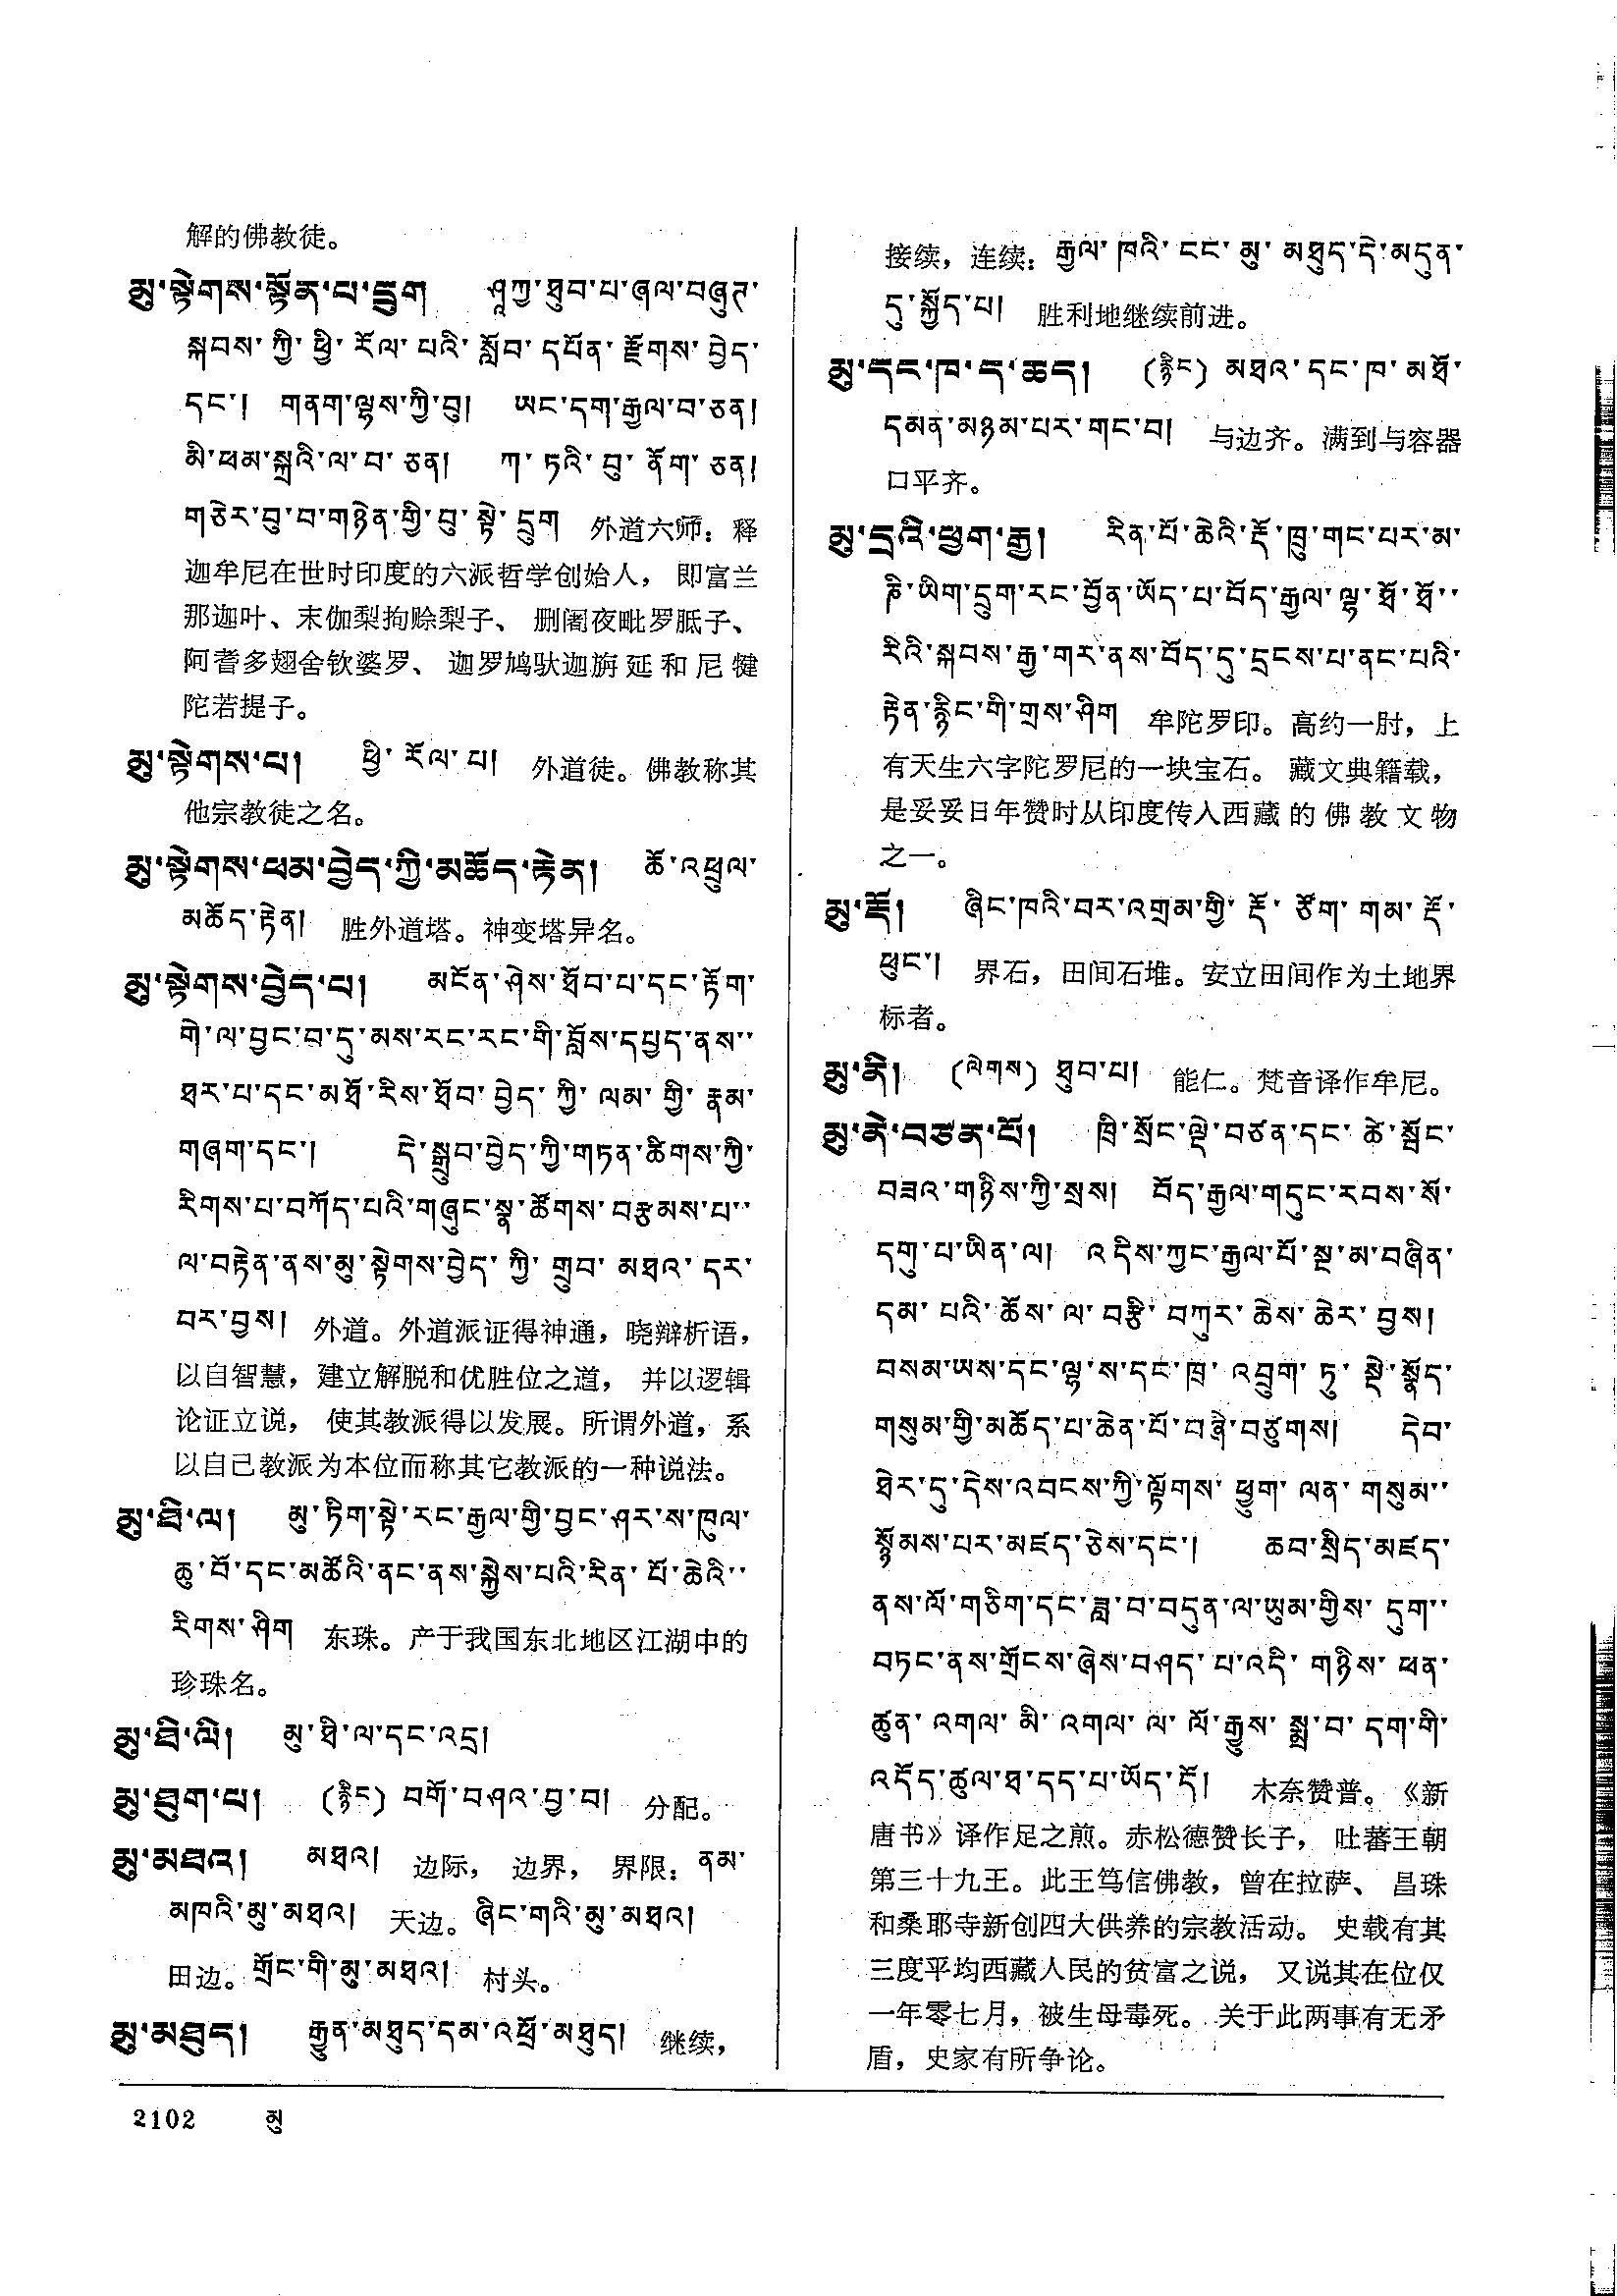 解的佛教徒。
མུ་སྟེགས་སྟོན་པ་དྲུག ཤཱཀྱ་ཐུབ་པ་ཞལ་བཞུཊ་
སྐབས་ཀྱི་ཕྱི་རོལ་པའི་སློབ་དཔོན་རྫོགས་བྱེད་
དང་། གནག་ལྷས་ཀྱི་བུ། ཡང་དག་རྒྱལ་བ་ཅན།
མི་ཕམ་སྐྲའི་ལ་བ་ཅན། ཀ་ཏའི་བུ་ནོག་ཅན།
གཅེར་བུ་བ་གཉེན་གྱི་བུ་སྟེ་དྲུག 外道六师：释
迦牟尼在世时印度的六派哲学创始人，即富兰
那迦叶、末伽梨拘赊梨子、删阇夜毗罗胝子、
阿耆多翅舍钦婆罗、迦罗鸠驮迦旃延和尼犍
陀若提子。
མུ་སྟེགས་པ། ཕྱི་རོལ་པ། 外道徒。佛教称其
他宗教徒之名。
མུ་སྟེགས་ཕམ་བྱེད་ཀྱི་མཆོད་རྟེན། ཆོ་འཕྲུལ་
མཆོད་རྟེན། 胜外道塔。神变塔异名。
མུ་སྟེགས་བྱེད་པ། མངོན་ཤེས་ཐོབ་པ་དང་རྟོག་
གེ་ལ་བྱང་བ་དུ་མས་རང་རང་གི་བློས་དཔྱད་ནས་་
ཐར་པ་དང་མཐོ་རིས་ཐོབ་བྱེད་ཀྱི་ལམ་གྱི་རྣམ་
གཞག་དང་། དེ་སྒྲུབ་བྱེད་ཀྱི་གཏན་ཚིགས་ཀྱི་
རིགས་པ་བཀོད་པའི་གཞུང་སྣ་ཚོགས་བརྩམས་པ་་
ལ་བརྟེན་ནས་མུ་སྟེགས་བྱེད་ཀྱི་གྲུབ་མཐའ་དར་
བར་བྱས། 外道。外道派证得神通，晓辩析语，
以自智慧，建立解脱和优胜位之道，并以逻辑
论证立说，使其教派得以发展。所谓外道，系
以自己教派为本位而称其它教派的一种说法。
མུ་ཐི་ལ། མུ་ཏིག་སྟེ་རང་རྒྱལ་གྱི་བྱང་ཤར་ས་ཁུལ་
ཆུ་བོ་དང་མཚོའི་ནང་ནས་སྐྱེས་པའི་རིན་པོ་ཆེའི་་
རིགས་ཤིག 东珠。产于我国东北地区江湖中的
珍珠名。
མུ་ཐི་ལི། མུ་ཐི་ལ་དང་འདྲ།
མུ་ཐུག་པ། (རྙིང) བགོ་བཤའ་བྱ་བ། 分配。
མུ་མཐའ། མཐའ། 边际，边界，界限：ནམ་
མཁའི་མུ་མཐའ། 天边。ཞིང་གའི་མུ་མཐའ།
田边。གྲོང་གི་མུ་མཐའ། 村头。
མུ་མཐུད། རྒྱུན་མཐུད་དམ་འཕྲོ་མཐུད། 继续，
接续，连续：རྒྱལ་ཁའི་ངང་མུ་མཐུད་དེ་མདུན་
དུ་སྐྱོད་པ། 胜利地继续前进。
མུ་དང་ཁ་ད་ཆད། (རྙིང) མཐའ་དང་ཁ་མཐོ་
དམན་མཉམ་པར་གང་བ། 与边齐。满到与容器
口平齐。
མུ་དྲའི་ཕྱག་རྒྱ། རིན་པོ་ཆེའི་རྡོ་ཁྲུ་གང་པར་མ་
ཎི་ཡིག་དྲུག་རང་བྱོན་ཡོད་པ་བོད་རྒྱལ་ལྷ་ཐོ་ཐོ་་
རིའི་སྐབས་རྒྱ་གར་ནས་བོད་དུ་དྲངས་པ་ནང་པའི་
རྟེན་རྙིང་གི་གྲས་ཤིག 牟陀罗印。高约一肘，上
有天生六字陀罗尼的一块宝石。藏文典籍载，
是妥妥日年赞时从印度传入西藏的佛教文物
之一。
མུ་རྡོ། ཞིང་ཁའི་བར་འགྲམ་གྱི་རྡོ་ཙོག་གམ་རྡོ་
ཕུང་། 界石，田间石堆。安立田间作为土地界
标者。
མུ་ནི། (ལེགས) ཐུབ་པ། 能仁。梵音译作牟尼。
མུ་ནེ་བཙན་པོ། ཁྲི་སྲོང་ལྡེ་བཙན་དང་ཚེ་སྤོང་
བཟའ་གཉིས་ཀྱི་སྲས། བོད་རྒྱལ་གདུང་རབས་སོ་
དགུ་པ་ཡིན་ལ། འདིས་ཀྱང་རྒྱལ་པོ་སྔ་མ་བཞིན་
དམ་པའི་ཆོས་ལ་བརྩི་བཀུར་ཆེས་ཆེར་བྱས།
བསམ་ཡས་དང་ལྷ་ས་དང་ཁྲ་འབྲུག་ཏུ་སྡེ་སྣོད་
གསུམ་གྱི་མཆོད་པ་ཆེན་པོ་བཞི་བཙུགས། དེབ་
ཐེར་དུ་དེས་འབངས་ཀྱི་ལྟོགས་ཕྱུག་ལན་གསུམ་་
སྙོམས་པར་མཛད་ཅེས་དང་། ཆབ་སྲིད་མཛད་
ནས་ལོ་གཅིག་དང་ཟླ་བ་བདུན་ལ་ཡུམ་གྱིས་དུག་་
བཏང་ནས་གྲོངས་ཞེས་བཤད་པ་འདི་གཉིས་ཕན་
ཚུན་འགལ་མི་འགལ་ལ་ལོ་རྒྱུས་སྨྲ་བ་དག་གི་
འདོད་ཚུལ་ཐ་དད་པ་ཡོད་དོ། 木奈赞普。《新
唐书》译作足之煎。赤松德赞长子，吐蕃王朝
第三十九王。此王笃信佛教，曾在拉萨、昌珠
和桑耶寺新创四大供养的宗教活动。史载有其
三度平均西藏人民的贫富之说，又说其在位仅
一年零七月，被生母毒死。关于此两事有无矛
盾，史家有所争论。
2102 མུ